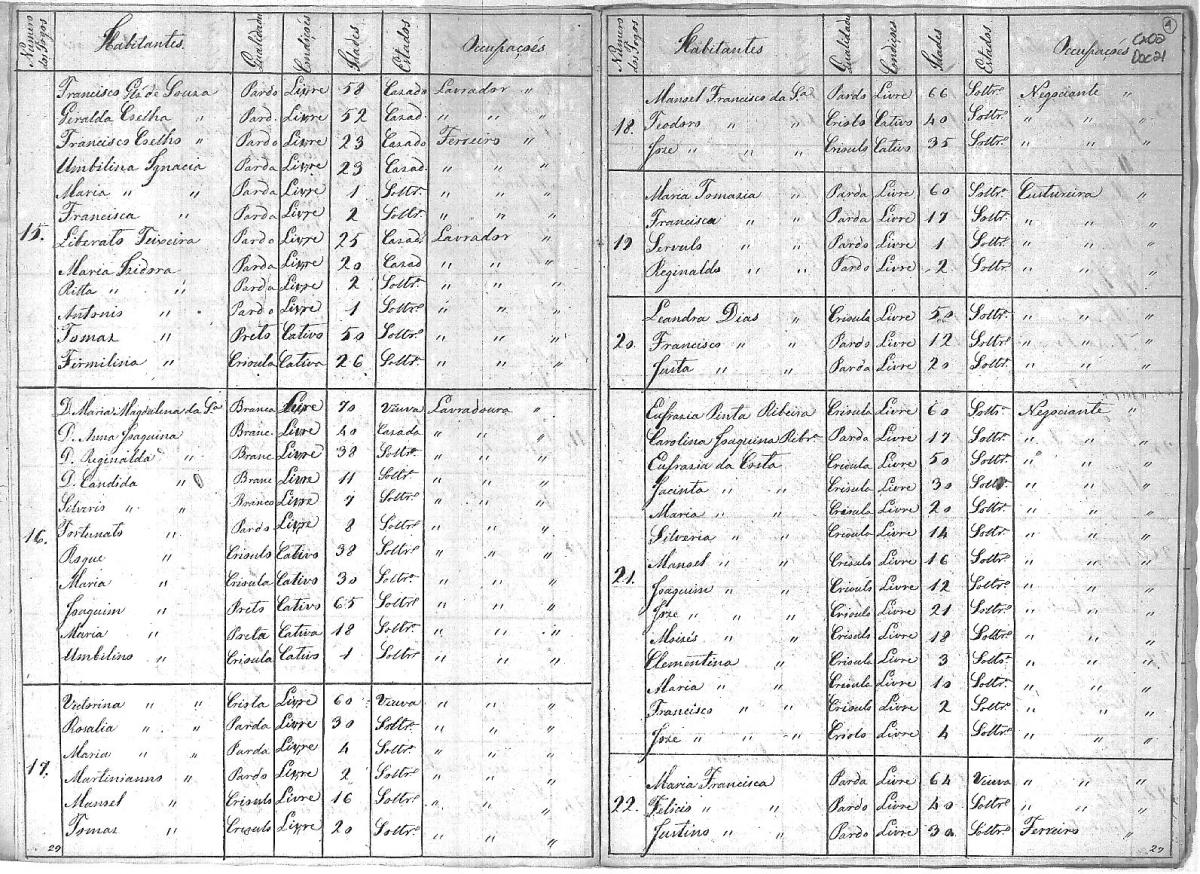 Número dos Fogos Habitantes Qualidades Condiçois Idades Estados Occupaçoés
Francisco Glz de Souza Pardo Livre 58 Cazado Lavrador "
Geralda Coelha " Pard. Livre 52 Cazad. " " "
Francisco Coelho " Pardo Livre 23 Cazado Ferreiro "
Umbilina Ignacia Parda Livre 23 Cazad. " "
Maria " " Parda Livre 1 Soltr. " "
Francisca " Parda Livre 2 Soltr. " " "
15. Liberato Teixeira Pardo Livre 25 Cazad Lavrador "
Maria Izidora Parda Livre 20 Cazad " " "
Ritta " " Parda Livre 2 Soltr. " " "
Antonio " Pardo Livre 1 Soltro. " "
Tomaz " Preto Cativo 50 Soltro. " " "
Firmilina " Crioula Cativa 26 Soltr. " " "
D. Maria Magdalina da Sa Branca Livre 70 Viuva Lavradoura "
D. Anna Joaquina Branc Livre 40 Cazada " " "
D. Reginalda " Branc Livre 38 Soltr. " " "
D. Candida " Branc Livre 11 Soltr. " " "
Silverio " " Branco Livre 7 Soltr. " " "
16. Fortunato " Pardo Livre 8 Soltr. " " "
Roque " Crioulo Cativo 38 Soltro. " " "
Maria " Crioula Cativo 30 Soltr. " " "
Joaquim " Preto Cativo 65 Soltro. " " "
Maria " Preta Cativa 18 Soltr. " " "
Umbilino " Crioula Cativo 1 Soltro. " " "
Victorina " " Criola Livre 60 Viuva " " "
Rosalia " " Parda Livre 30 Soltr. " " "
Maria " " Parda Livre 4 Soltr. " " "
17. Martinianno " Pardo Livre 2 Soltr. " " "
Manoel " Crioulo Livre 16 Soltr. " " "
Tomaz " Crioulo Livre 20 Soltr. " " "
29
1
Cx03
Doc21
Número dos Fogos Habitantes Qualidad Condiços Idades Estados Occupaçoés
Manoel Francisco da Sa Pardo Livre 66 Soltr. Negociante "
18. Teodoro " " Criolo Cativo 40 Soltr. " " "
Joze " " Crioulo Cativo 35 Soltr. " " "
Maria Tomazia " Parda Livre 60 Soltr. Custureira "
Francisca " " Parda Livre 17 Soltr. " " "
19 Servulo " " Pardo Livre 1 Soltr. " " "
Reginaldo " " Pardo Livre 2 Soltr. " " "
Leandra Dias " Crioula Livre 50 Soltr. " " "
20. Francisco " " Pardo Livre 12 Soltr. " " "
Justa " " Parda Livre 20 Soltr. " " "
Eufrazia Pinta Ribeira Crioula Livre 60 Soltr. Negociante "
Carolina Joaquina Ribr. Parda Livre 17 Soltr. " " "
Eufrazia da Costa Crioula Livre 50 Soltr. " " "
Jacinta " " Crioula Livre 30 Soltr. " " "
Maria " " Crioula Livre 20 Soltr. " " "
Silveria " " Crioula Livre 14 Soltr. " " "
21. Manoel " " Crioulo Livre 16 Soltro. " " "
Joaquim " " Crioulo Livre 12 Soltro. " " "
Joze " " Crioulo Livre 21 Soltro. " " "
Moizés " " Crioulo Livre 18 Soltro. " " "
Clementina " Crioula Livre 3 Soltr. " " "
Maria " " Crioula Livre 10 Soltr. " " "
Francisco " " Crioulo Livre 2 Soltr. " " "
Joze " " " Criolo Livre 4 Soltr. " "
Maria Francisca Parda Livre 64 Viuva " " "
22. Felicio " " Pardo Livre 40 Soltr. " " "
Justino " " Pardo Livre 30 Soltro. Ferreiro "
27